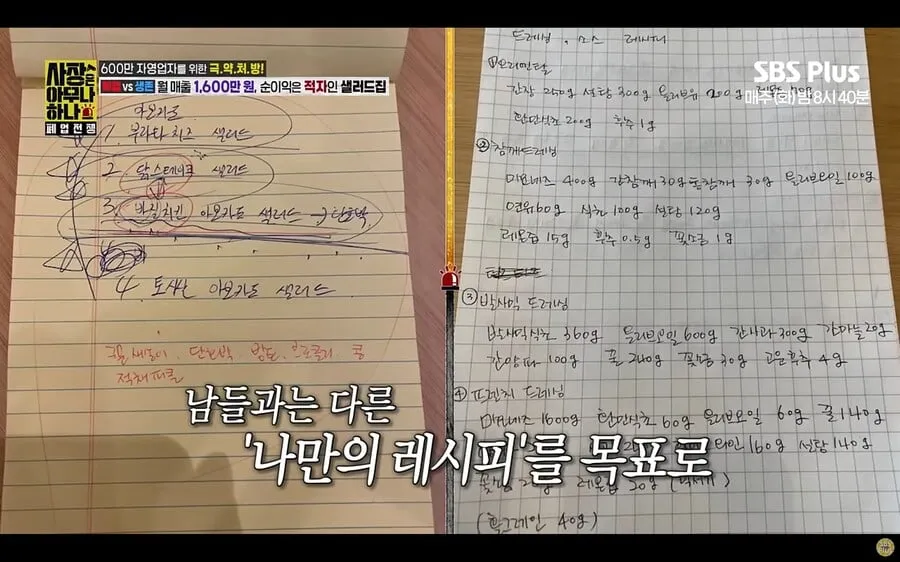 사장은
아무나
하나
폐업전쟁
600만 자영업자를 위한 극.약.처.방!
vs 생존 월 매출 1,600만 원, 순이익은 적자인 샐러드집
SBS Plus
매주 (화) 밤 8시 40분
아보카도
1. 부라타치즈 샐러드
2. 닭스테이크 샐러드
3. 바질치킨 아보카도 샐러드 →
4. 아보카도 샐러드
단호박
적채피클
드레싱, 소스 레시피
① 오리엔탈
간장 250g 설탕 300g 올리브유
식초 200g 후추 1g
② 참깨드레싱
마요네즈 400g 간참깨 30g 통참깨 30g 올리브오일 100g
60g 식초 100g 설탕 120g
레몬즙 15g 후추 0.5g 꽃소금 1g
③ 발사믹 드레싱
발사믹식초 360g 올리브오일 600g 간사과 300g 간마늘 20g
간양파 100g 꿀 240g 꽃소금 30g 고운후추 4g
④ 프렌치 드레싱
마요네즈 1600g 60g 올리브오일 60g 꿀 140g
와인 160g 설탕 140g
레몬즙 30g
(홀그레인 40g)
남들과는 다른
'나만의 레시피'를 목표로